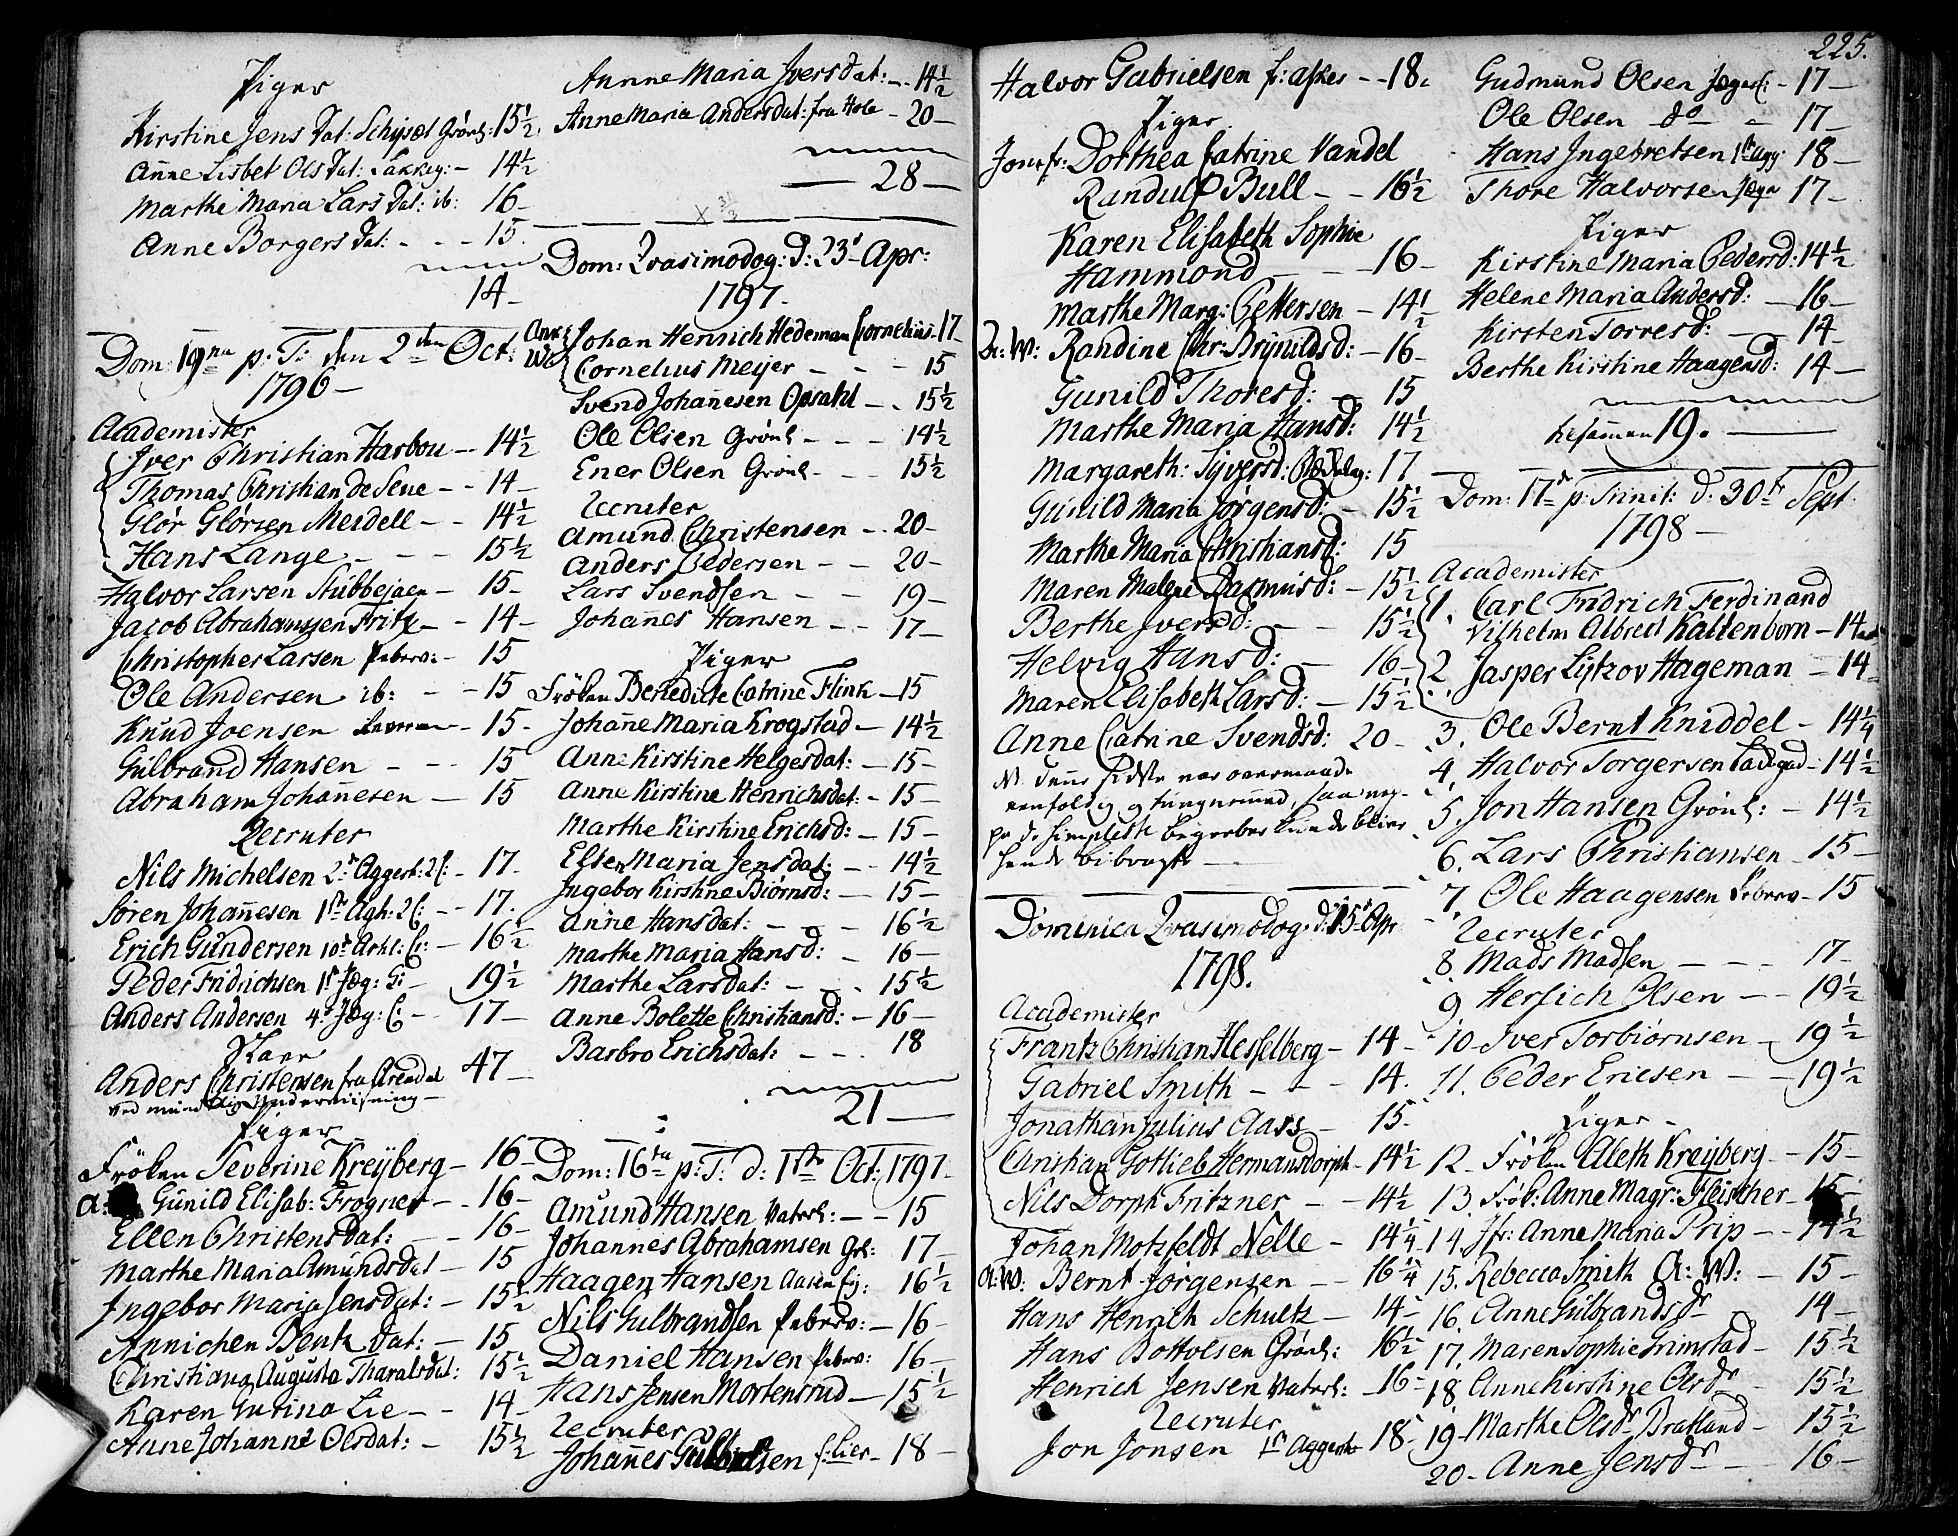 Piger
Kirstine Jens Dat: Schysat Grönl: 15½
Anne Lisbet Ols Dat: Lakkeg: - 14½
Marthe Maria Lars Dat: ib: 16 -
Anne Borgers Dat: - - - 15.
14 -
Dom: 19na p: T: den 2den Oct:
1796 -
Academister
Iver Christian Harbou - - 14½
Thomas Christian de Seue - - 14 -
Glör Glörsen Meidell - - 14½
Hans Lange - - - 15½
Halvor Larsen Stubbejaen - 15 -
Jacob Abrahamsen Fritz - - 14 -
Christopher Larsen Peberv: - 15
Ole Andersen ib: - - 15
Knud Joensen - 15 -
Gulbrand Hansen - - - 15
Abraham Johannesen - - 15
Recruter
Nils Michelsen 2d Aggerh: 2 C: - 17.
Sören Johannesen 1ste Agh: 2 C: - - 17.
Erich Gundersen 10d Arkl: C: - 16½
Peder Fridrichsen 1st Jæg: C: - 19½
Anders Andersen 4d Jæg: C: - - 17 -
Anders Christensen fra Arendal 47 -
ved mundtlig Underviisning -
Piger
Fröken Severine Kreÿberg - 16 -
a: Gunild Elisab: Frogner - 16 -
Ellen Christens Dat: - - 16 -
Marthe Maria Amunds Dat - 15
Ingebor Maria Jens Dat: - 15½
Annichen Benk Dat: - 15
Christiana Augusta Tharalsdat: - 15½
Karen Gurina Lie - - 14 -
Anne Johanne Olsdat: - 15½
Annne Maria Ivers Dat: - - 14½
Anne Maria Anders Dat: fra Hole - 20 -
28 -
Dom: Qvasimodog: D: 23d Apr:
1797.
Johan Henrich Hedeman Cornelius - 17
Cornelius Meyer - - - 15
Svend Johannesen Opsahl - - 15½
Ole Olsen Grönl - - - 14½
Ener Olsen Grönl - - - 15½
Recruter
Amund Christensen - - 20 -
Anders Pedersen - - 20 -
Lars Svendsen - - 19 -
Johannes Hansen - - 17 -
Piger
Fröken Benedicte Catrine Flink - 15
Johanne Maria Krogstad - 14½
Anne Kirstine Helgesdat: - 15 -
Anne Kirstine Henrichsdat: - 15 -
Marthe Kirstine Erichsd: - 15 -
Elsen Maria Jensdat: - 14½
Ingebor Kirstine Biörnsd: - 15 -
Anne Hansdat: - - - 16½
Marthe Maria Hansd: - 16 -
Marthe Larsdat: - - - 15½
Anne Bolette Christiansd: - 16 -
Barbro Erichsdat: - - - 18
21 -
Dom: 16ta p: T: d: 1ste Oct: 1797
Amund Hansen Vaterl: - - 15
Johannes Abrahamsen Grl: - 17 -
Haagen Hansen 16½
Nils Gulbrandsen Peberv: - 16 -
Daniel Hansen Peberv: - 16 -
Hans Jensen Mortensrud - 15½
Recruter
Johannes Gulbrandsen f: Lier - 18 -
225.
Halvor Gabrielsen f: Asker - - 18.
Piger
Jomfr: Dorthea Catrine Vandel
Randulf Bull - - 16½
Karen Elisabeth Sophie
Hammond - - - 16 -
Marthe Marg: Pettersen - 14½
A: W: Randine Chr: Brynildsd: - 16 -
Gunild Thoresd: - 15
Marthe Maria Hansd: 14½
Margareth: Syversd: 17
Gunild Maria Jörgensd: - 15½
Marthe Maria Christiansd: 15
Maren Malene Rasmusd: - 15½
Berthe Iversd: - - 15½
Helvig Hansd: - 16 -
Maren Elisabeth Larsd: - 15½
Anne Catrine Svendsd: 20 -
N: denne sidste var overmaade
eenfoldig og tungnemmed, saa nep-
pe de simpleste begreber kunde blive
hende bibragte -
Dominica Qvasimodog: d: 15d Apr
1798.
Academister
Frantz Christian Hesselberg - 14 -
Gabriel Smith - - - 14.
Jonathan Julius Aass - 15 -
Christian Gotlieb Hermansdorph - 14½
Nils Dorph Fritzner - 14½
Johan Motzfeldt Nelle - 14¼
A: W: Bernt Jörgensen - - 16¼
Hans Henrich Schultz - 14 -
Hans Bottolsen Grönl: 16½
Henrich Jensen Vaterl: - 16 -
Recruter
Jon Jonsen 1st Aggersh 18 -
Gudmund Olsen Jægerc: - 17 -
Ole Olsen do - 17 -
Hans Ingebretsen 1ste Agg: 18 -
Thore Halvorsen Jæger 17 -
Piger
Kirstine Maria Pedersd: 14½
Helene Maria Andersd: - 16 -
Kirsten Torresd: - 14 -
Berthe Kirstine Haagensd: 14 -
tilsammen 19. -
Dom: 17de p: Trinit: d: 30te Sept:
1798 -
Academister
1. Carl Fridrich Ferdinand
Vilhelm Albrect Kaltenborn - 14
2 Jasper Lützov Hageman - 14
3. Ole Bernt Kniddel - 14¼
4. Halvor Torgersen Ladegad - 14½
5. Jon Hansen Grönl: - 14½
6. Lars Christiansen - 15 -
7. Ole Haagensen Peberv - 15
Recruter
8. Mads Madsen - - - 17 -
9 Herlich Olsen - - 19½
10 - Iver Torbiörnsen - 19½
11. Peder Ericsen - - 19½
Piger -
12 - Fröken Aleth Kreÿberg - 15 -
13. Fröb: Anne Magr: Fleischer - 15 -
14. Jfr: Anne Maria Prip - - 14½
15. Rebecca Smith A: W: - 15 -
16. Anne Gulbrandsdr 14 -
17. Maren Sophie Grimstad - 15½
18. Anne Kirstine Olsdr - 15½
19 - Marthe Olsdr Bratland - 15½
20 - Anne Jensdr - - 16 -